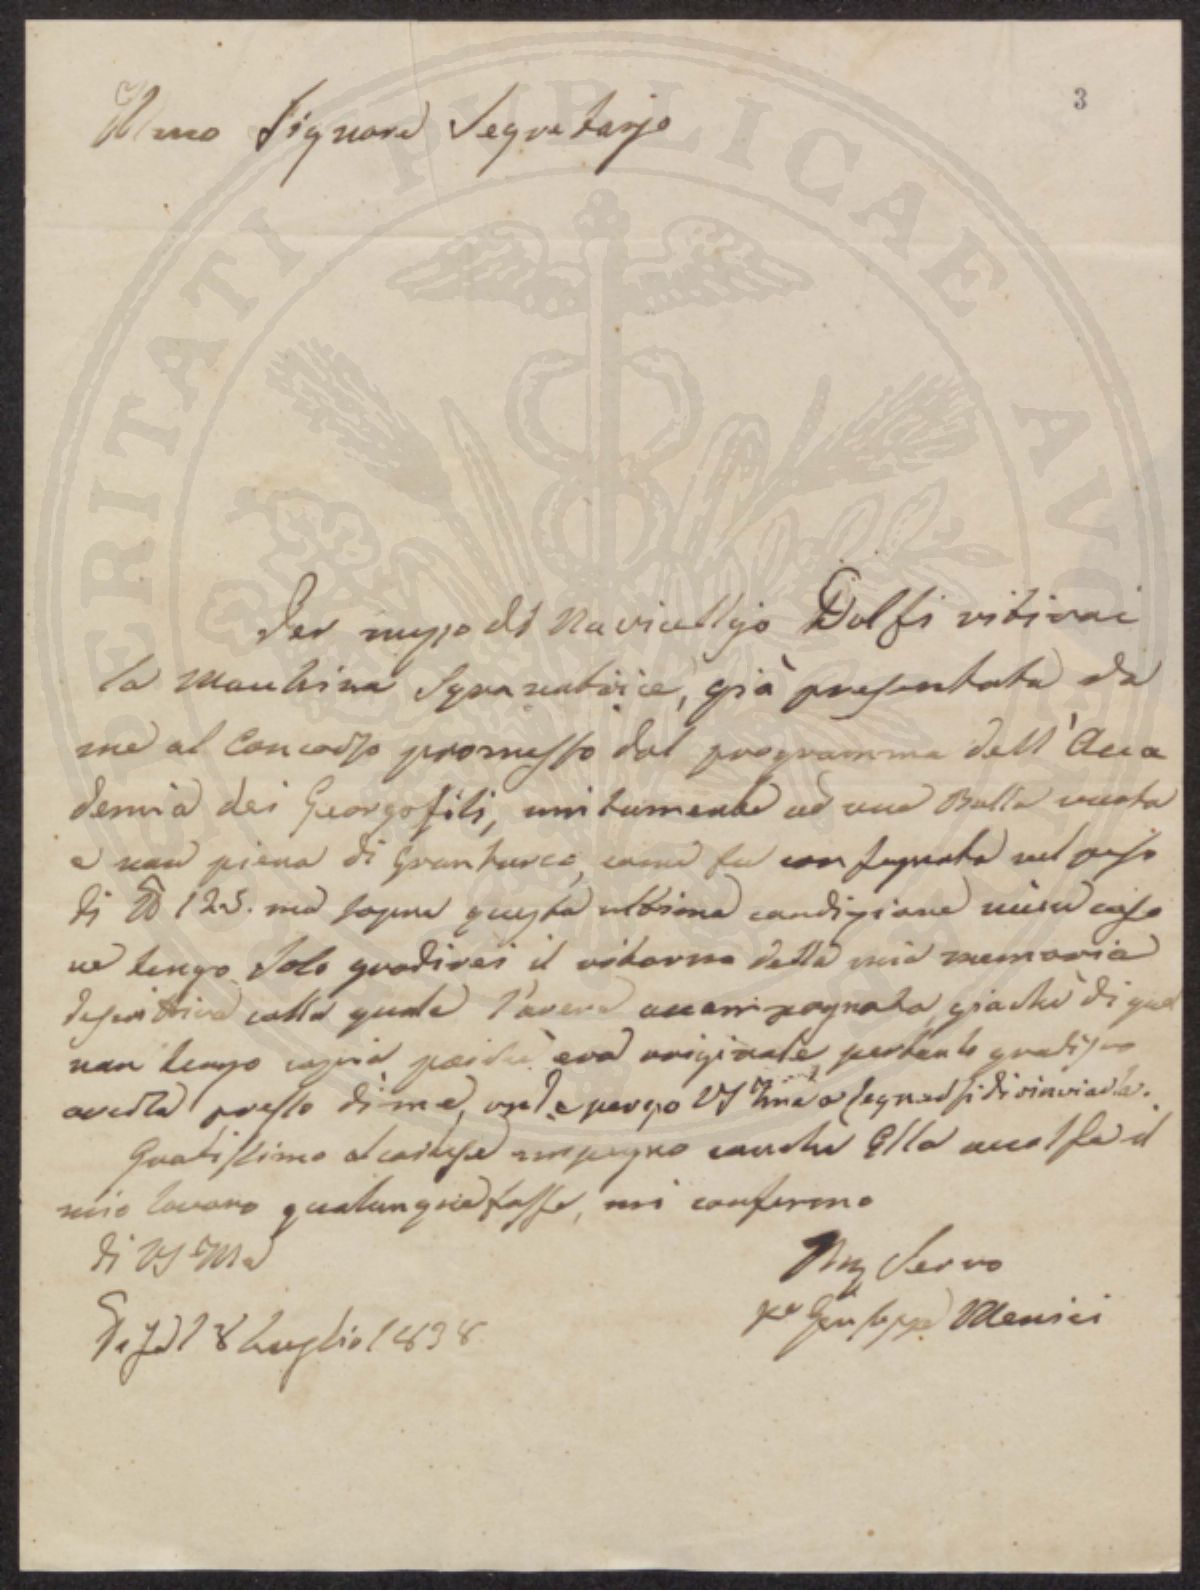 3
Illmo Signore Segretario
PROSPERITATI PUBLICAE AUGENDAE
Per mezzo del Navicellajo Dolfi ritirai
la Macchina Sgranatrice, già presentata da
me al Concorso promesso dal programma dell'Acca
demia dei Georgofili, unitamente ad una Balla vuota
e non piena di Granturco, come fu consegnata nel peso
di 125. ma sopra questa ultima condizione niun caso
ne tengo. Solo gradirei il ritorno della mia memoria
descrittiva colla quale l'avevo accompagnata, giacchè di quella
non tengo copia poichè era originale, pertanto gradisco
averla presso di me, onde prego VS Illma a degnarsi di rinviarla.
Gratissimo al cortese impegno con che Ella accolse il
mio lavoro qualunque fosse, mi confermo
di VS Illma
Servo
Giuseppe Menici
Pisa 18 Luglio 1838